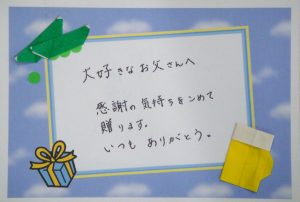 大好きなお父さんへ
感謝の気持ちをこめて
贈ります。
いつも ありがとう。